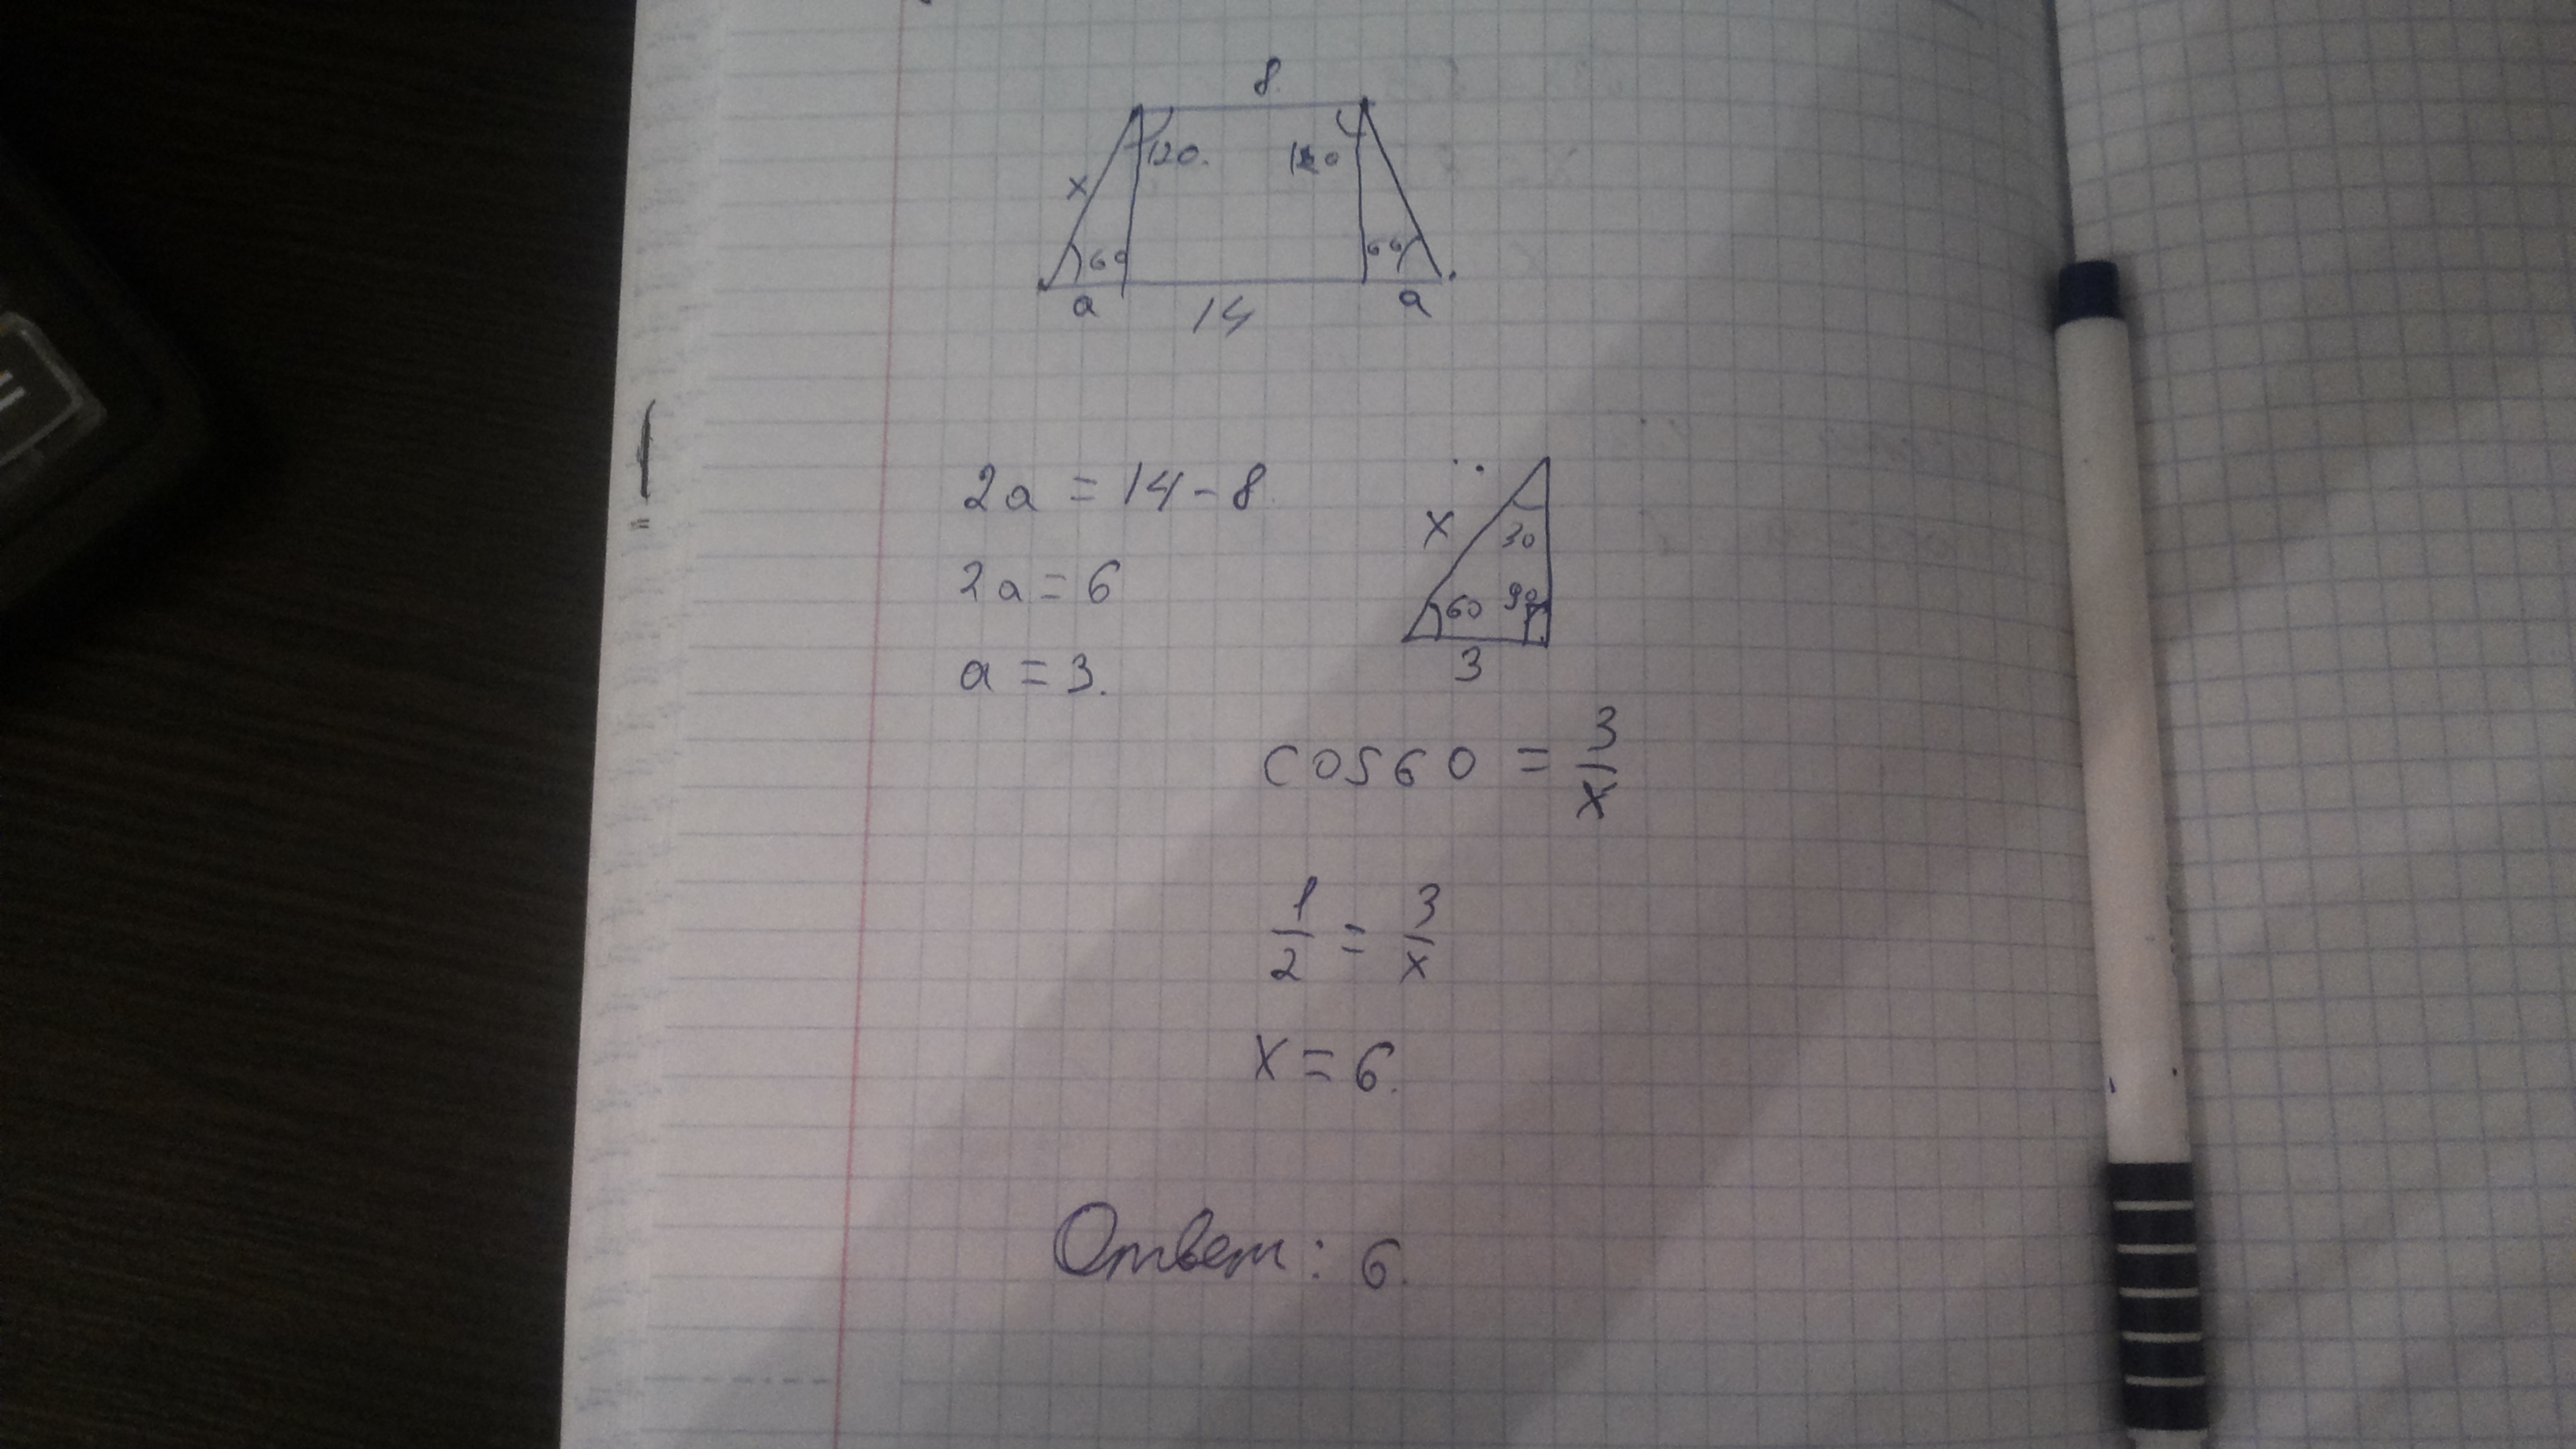 8.
120. 120
x
60 60
a 14 a
2a = 14 - 8
2a = 6
a = 3.
x
30
60 90
3
cos 60 = 3/x
1/2 = 3/x
x = 6.
Ответ: 6.